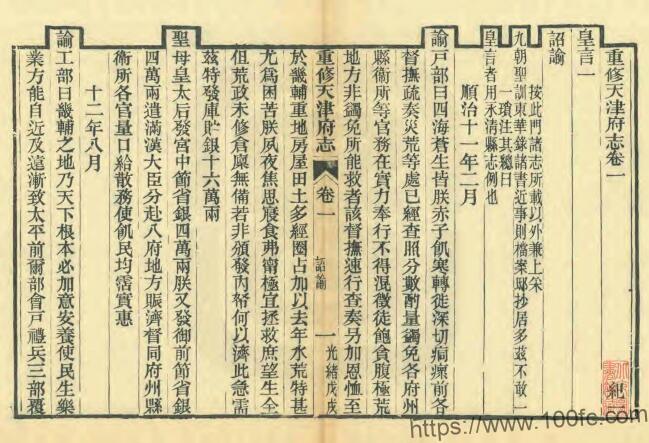 重修天津府志卷一
紀一
皇言一
詔諭
按此門諸志所載以外兼上采
九朝聖訓東華錄諸書近事則檔案邸抄居多茲不敢一
一瑣注其總曰
皇言者用永清縣志例也
順治十一年二月
諭戶部曰四海蒼生皆朕赤子飢寒轉徙深切痌瘝前各
督撫疏奏災荒等處已經查照分數酌量蠲免各府州
縣衞所等官務在實力奉行不得混徵徒飽貪腹極荒
地方非蠲免所能救者該督撫速行查奏另加恩恤至
於畿輔重地房屋田土多經圈占加以去年水荒特甚
尤為困苦朕夙夜焦思寢食弗甯極宜拯救庶望生全
但荒政未修倉廩無備若非頒發內帑何以濟此急需
茲特發庫貯銀十六萬兩
聖母皇太后發宮中節省銀四萬兩朕又發御前節省銀
四萬兩遣滿漢大臣分赴八府地方賑濟督同府州縣
衞所各官量口給散務使飢民均霑實惠
十二年八月
諭工部曰畿輔之地乃天下根本必加意安養使民生樂
業方能自近及遠漸致太平前爾部會戶禮兵三部覆
重修天津府志
卷一
詔諭
一
光緒戊戌
https://www.100fe.com